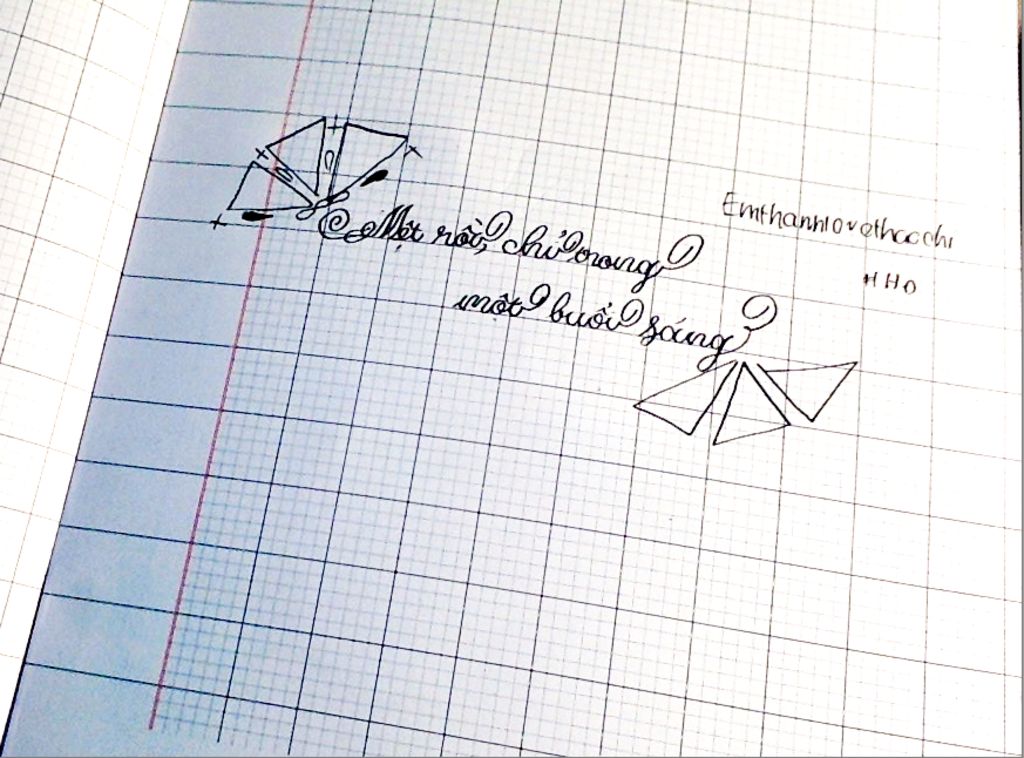 Mệt rồi, chỉ trong
một buổi sáng
Emthanhlovethacchi
HHO